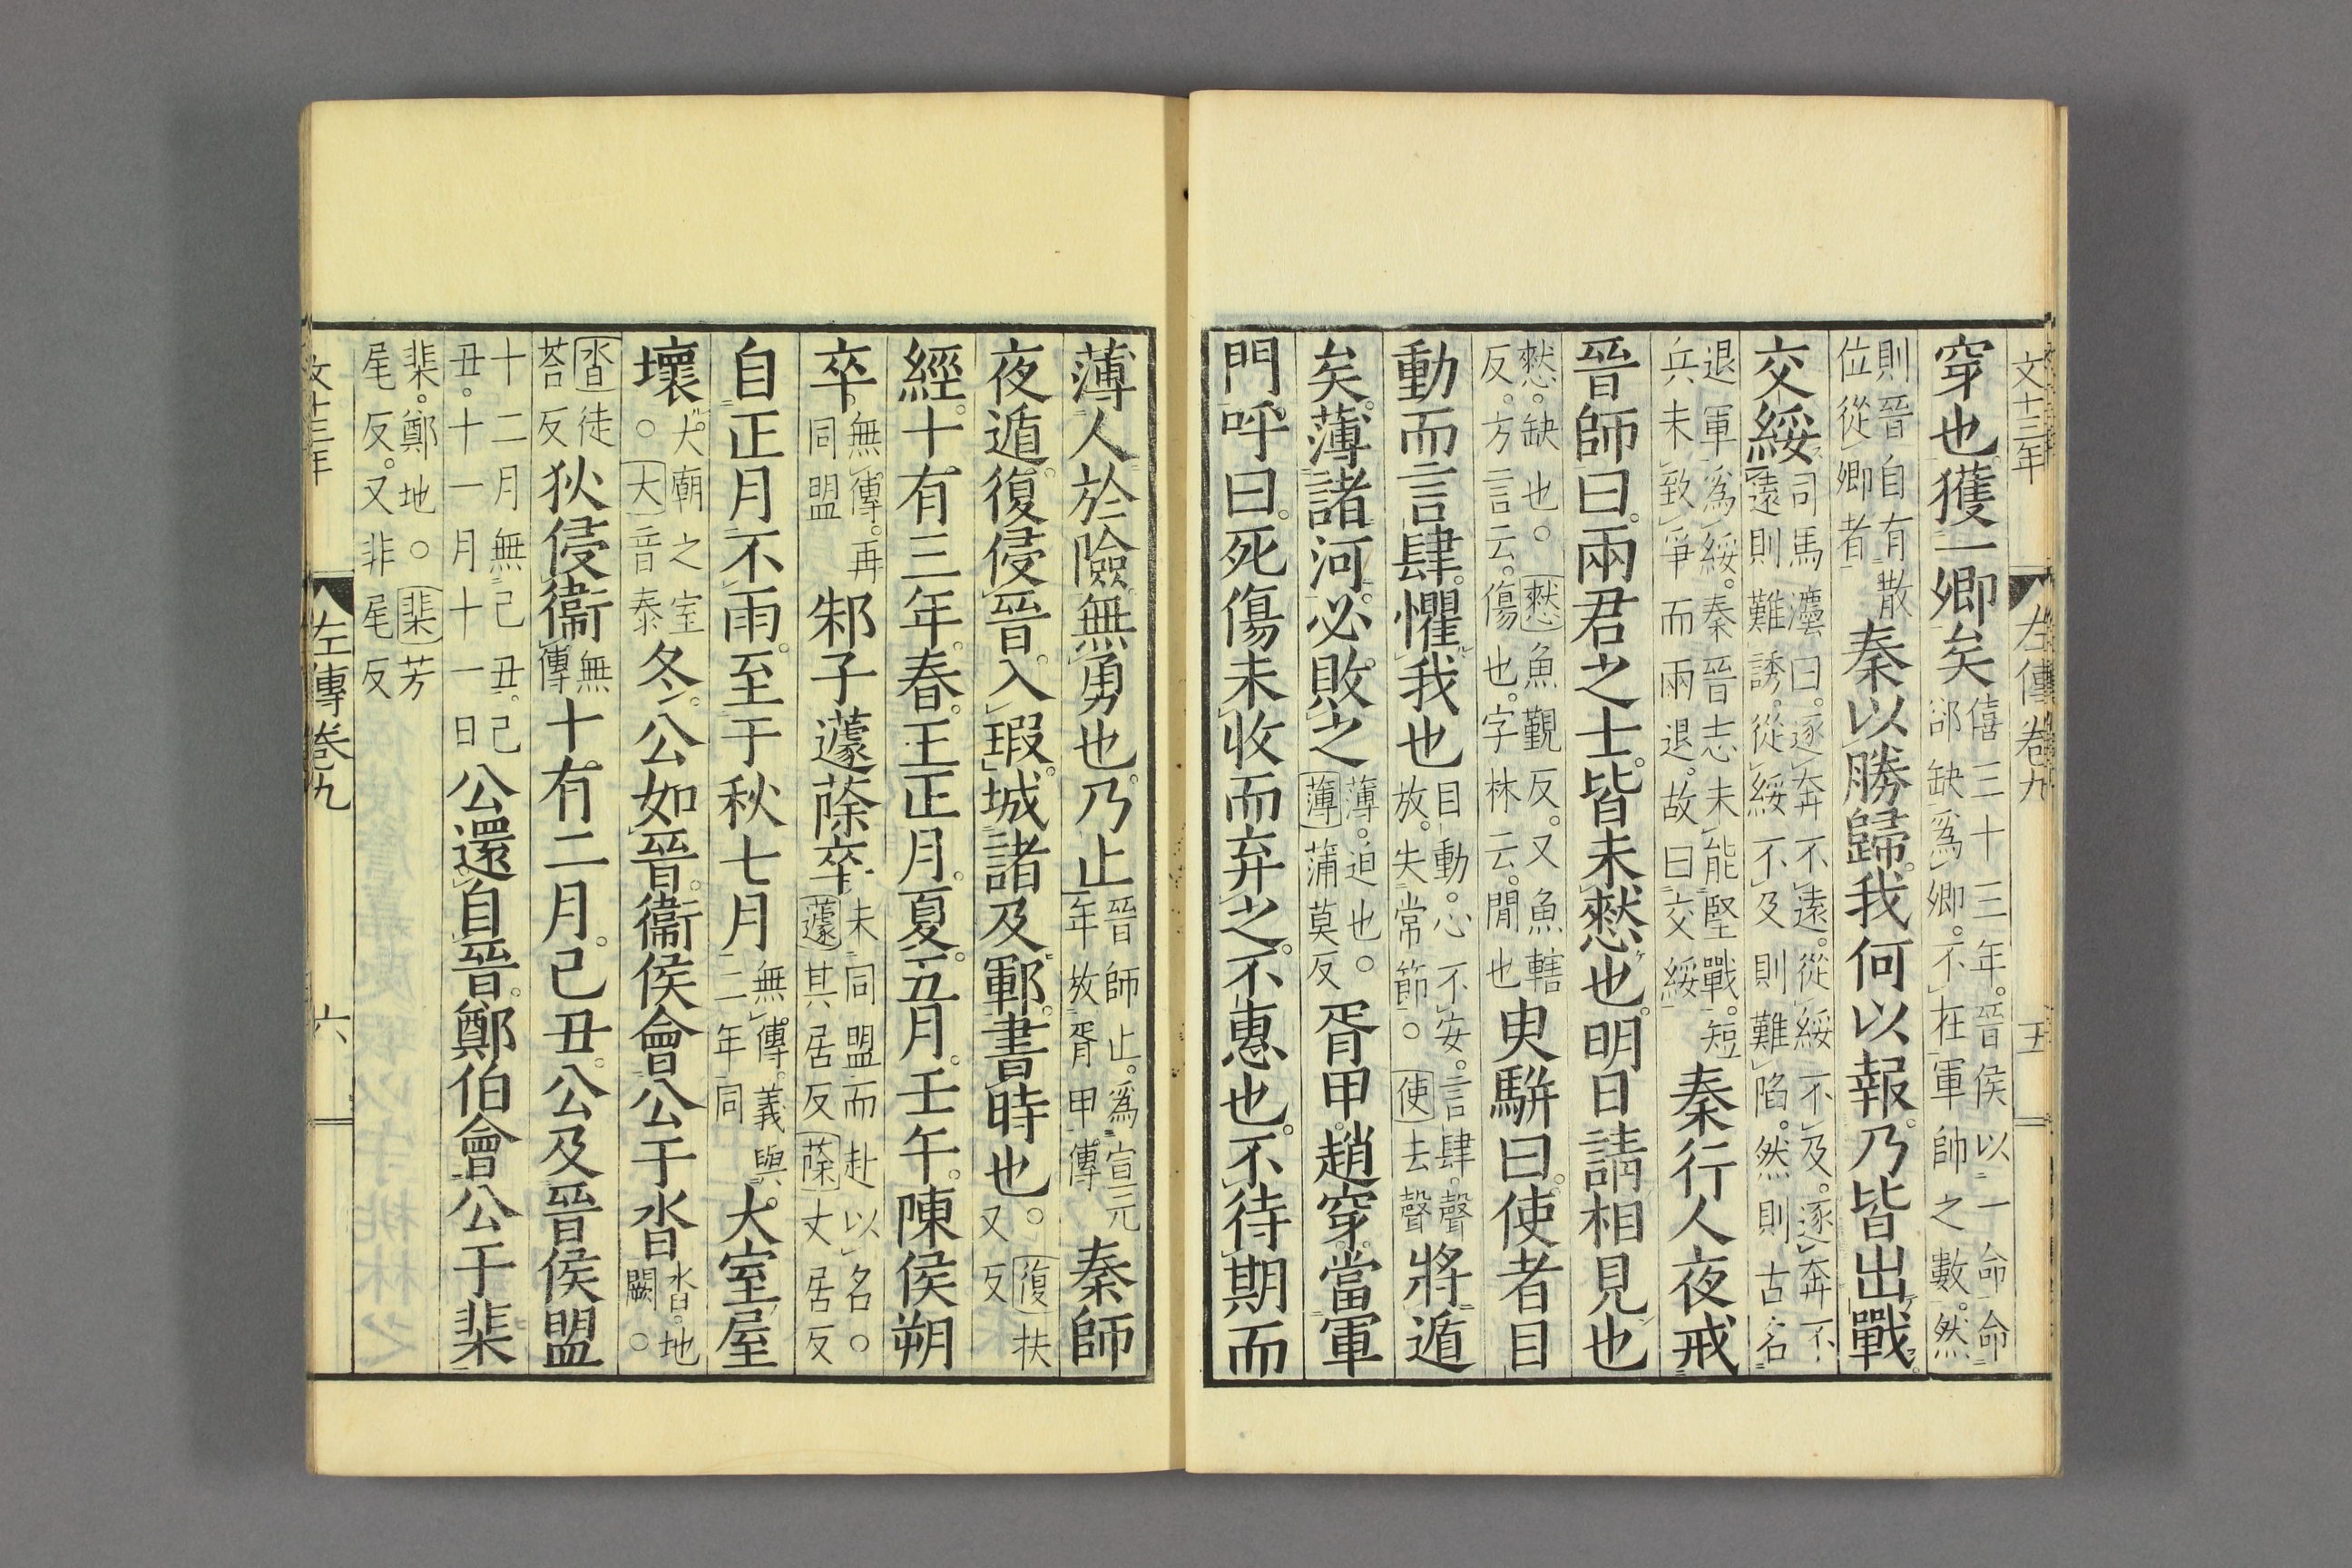 文十三年 左傳卷九 五
穿也。獲一卿矣僖三十三年。晉侯以一命命郤缺爲卿。不在軍帥之數。然
則晉自有散位從卿者秦以勝歸。我何以報。乃皆出戰。
交綏司馬灋曰。逐奔不遠。從綏不及。逐奔不遠則難誘。從綏不及則難陷。然則古名
退軍爲綏。秦晉志未能堅戰。短兵未致爭而兩退。故曰交綏秦行人夜戒
晉師曰。兩君之士。皆未憖也。明日請相見也
憖。缺也。○憖魚覲反。又魚轄反。方言云。傷也。字林云。閒也臾駢曰。使者目
動而言肆。懼我也目動。心不安。言肆。聲放。失常節。○使去聲將遁
矣。薄諸河。必敗之薄。迫也。○薄蒲莫反胥甲。趙穿。當軍
門呼。曰。死傷未收而弃之。不惠也。不待期而
薄人於險。無勇也。乃止晉師止。爲宣元年放胥甲傳秦師
夜遁。復侵晉。入瑕。城諸及鄆。書時也。○復扶又反
經。十有三年。春。王正月。夏。五月。壬午。陳侯朔
卒。無傳。再同盟邾子蘧蒢卒未同盟而赴以名。○蘧其居反蒢丈居反
自正月不雨。至于秋七月無傳。義與二年同大室屋
壞大廟之室○大音泰冬。公如晉。衞侯會公于沓沓。地闕○
沓徒荅反狄侵衞無傳十有二月。己丑。公及晉侯盟
十二月無己丑。己丑。十一月十一日公還自晉。鄭伯會公于棐
棐。鄭地。○棐芳尾反。又非尾反
文十三年 左傳卷九 六